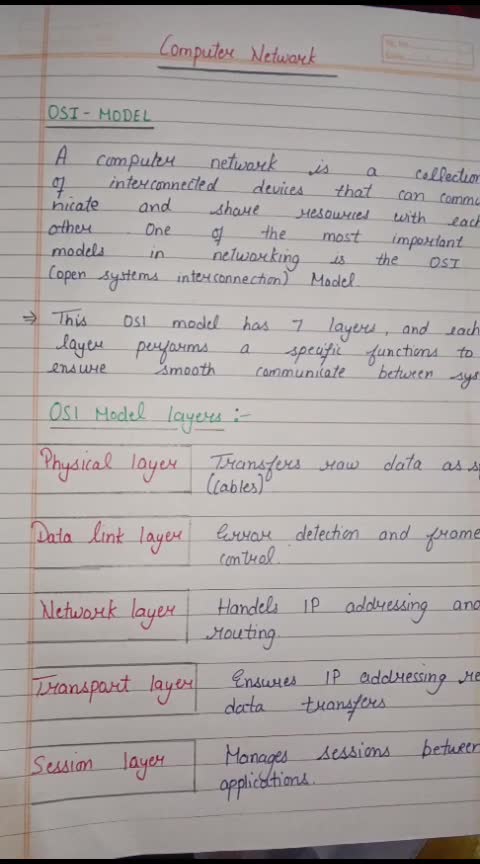 Computer Network
OSI - MODEL
A computer network is a collection
of interconnected devices that can commu
nicate and share resources with each
other One of the most important
models in networking is the OSI
(open systems interconnection) Model.
⇒ This OSI model has 7 layers, and each
layer performs a specific functions to
ensure smooth communicate between sys
OSI Model layers :-
Physical layer Transfers raw data as s
(cables)
Data link layer Error detection and frame
control.
Network layer Handels IP addressing and
routing.
Transpart layer Ensures IP addressing re
data transfers
Session layer Manages sessions between
applications.